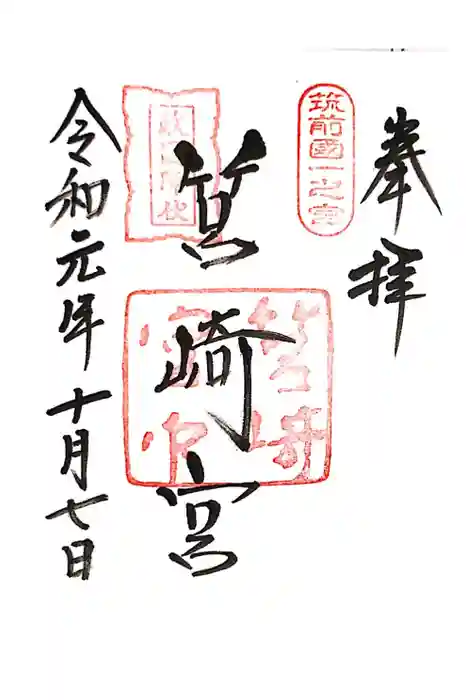 奉拝
筑前國一之宮
筥崎宮
敵国降伏
令和元年十月七日